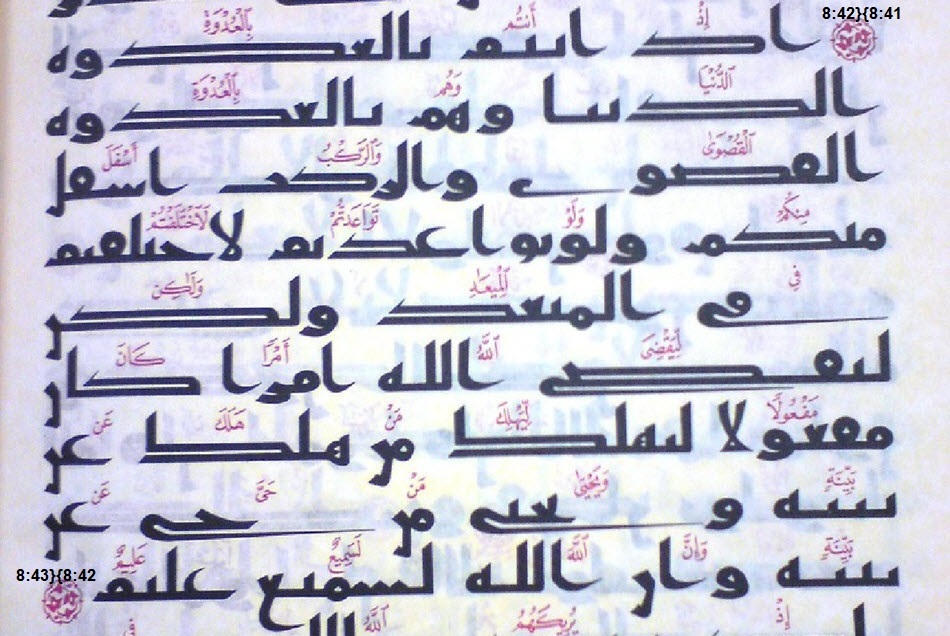 8:42}{8:41
إِذْ أَنتُم بِٱلْعُدْوَةِ
اذ انتم بالعدوه
ٱلدُّنْيَا وَهُم بِٱلْعُدْوَةِ
الدنيا وهم بالعدوه
ٱلْقُصْوَىٰ وَٱلرَّكْبُ أَسْفَلَ
القصوى والركب اسفل
مِنكُمْ وَلَوْ تَوَاعَدتُّمْ لَٱخْتَلَفْتُمْ
منكم ولو تواعدتم لاختلفتم
فِى ٱلْمِيعَـٰدِ وَلَـٰكِن
فى الميعد ولكن
لِّيَقْضِىَ ٱللَّهُ أَمْرًا كَانَ
ليقضى الله امرا كان
مَفْعُولًا لِّيَهْلِكَ مَنْ هَلَكَ عَنۢ
مفعولا ليهلك من هلك عن
بَيِّنَةٍ وَيَحْيَىٰ مَنْ حَىَّ عَنۢ
بينه و يحيى من حى عن
بَيِّنَةٍ وَإِنَّ ٱللَّهَ لَسَمِيعٌ عَلِيمٌ
بينه وان الله لسميع عليم
8:43}{8:42
إِذْ يُرِيكَهُمُ ٱللَّهُ فِى